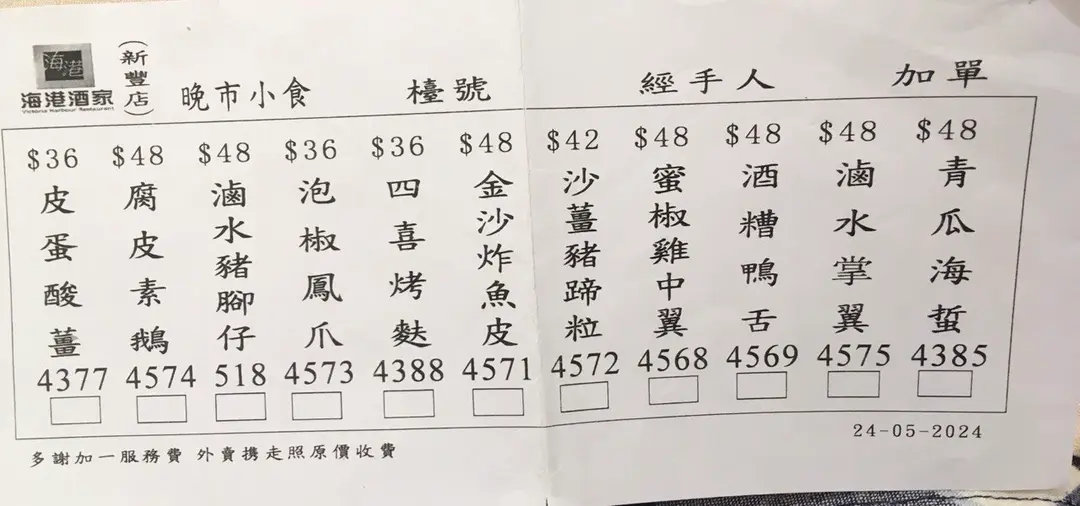 海港
海港酒家
Victoria Harbour Restaurant
(新豐店)
晚市小食
檯號
經手人
加單
$48
青瓜海蜇
4385
$48
滷水掌翼
4575
$48
酒糟鴨舌
4569
$48
蜜椒雞中翼
4568
$42
沙薑豬蹄粒
4572
$48
金沙炸魚皮
4571
$36
四喜烤麩
4388
$36
泡椒鳳爪
4573
$48
滷水豬腳仔
518
$48
腐皮素鵝
4574
$36
皮蛋酸薑
4377
24-05-2024
多謝加一服務費 外賣携走照原價收費